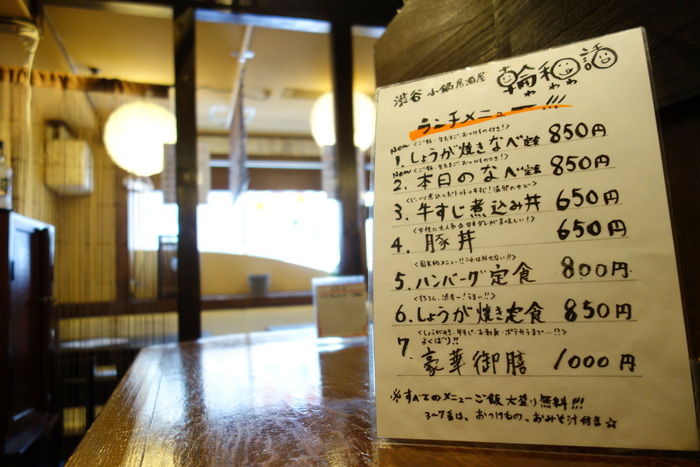 渋谷 小鍋居酒屋 輪和話
わわわ
ランチメニュー!!!
New
1. しょうが焼きなべ定食 850円
New
2. 本日のなべ定食 850円
3. 牛すじ煮込み丼 650円
4. 豚丼 650円
5. ハンバーグ定食 800円
6. しょうが焼き定食 850円
よくばり!!
7 豪華御膳 1000円
※すべてのメニューご飯大盛り無料!!!
3~7番は、おつけもの、おみそ汁付き☆